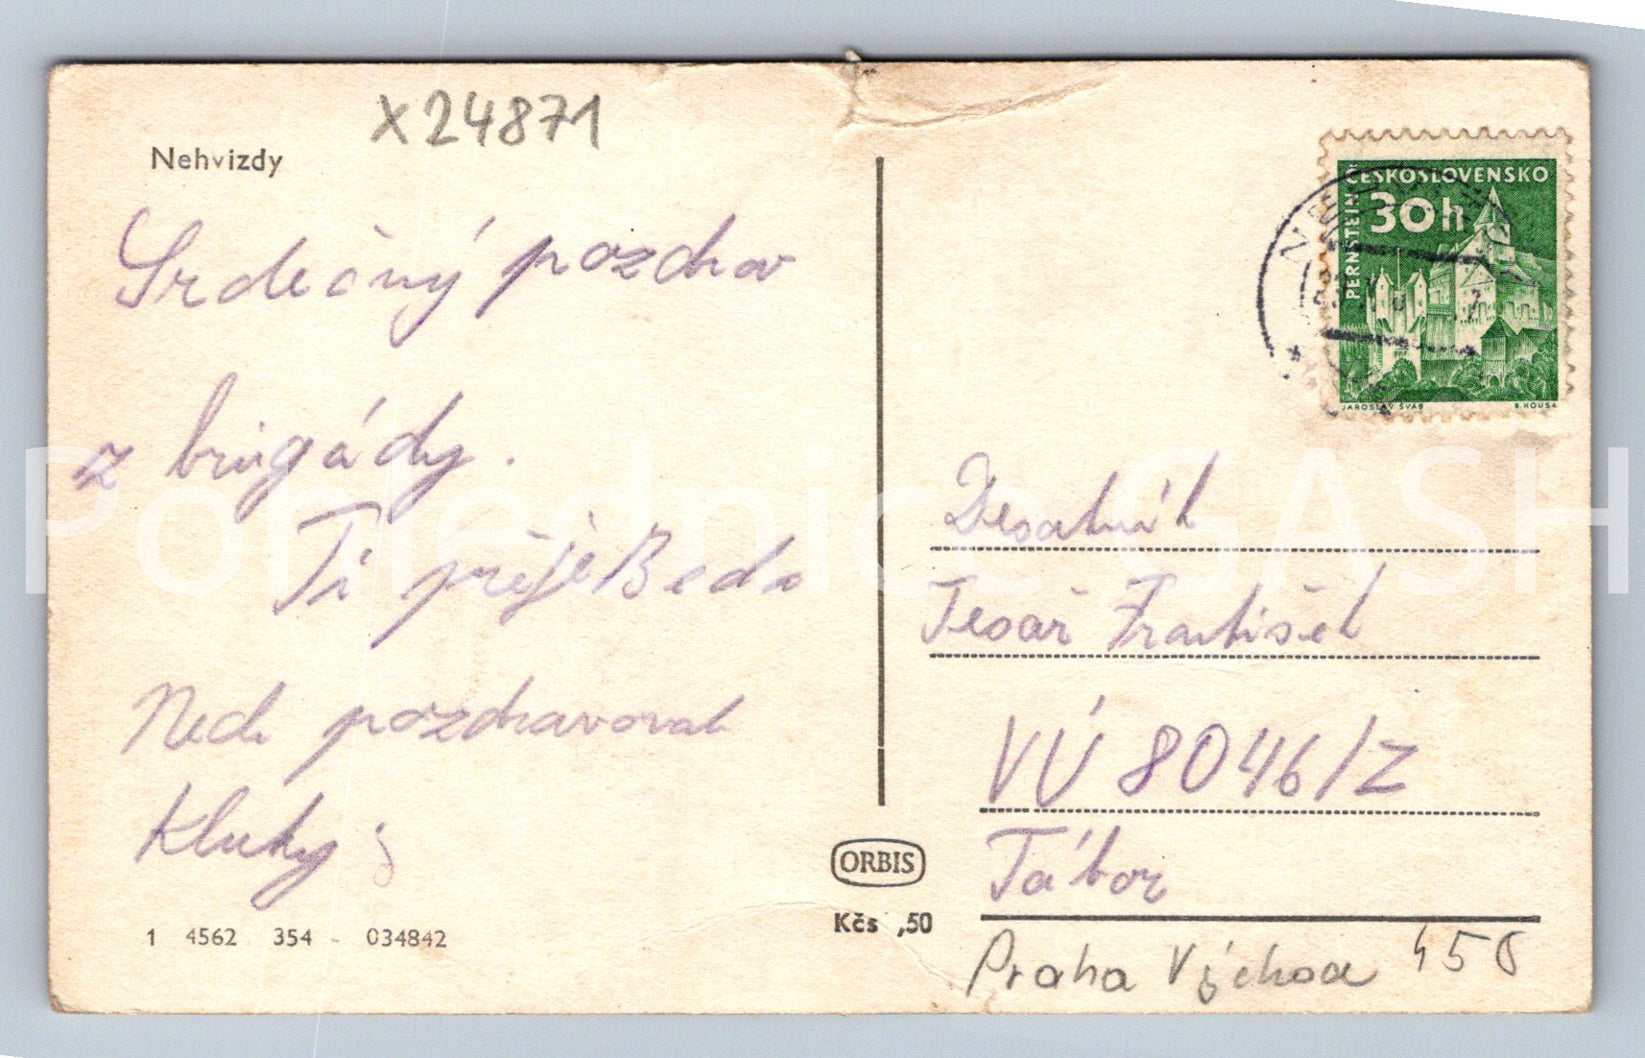 X24871
Nehvizdy
Srdečný pozdrav
z brigády.
Ti přeje Beda
Nech pozdravovat
Kluky
1 4562 354 - 034842
ORBIS
Kčs ,50
ČESKOSLOVENSKO
30h
PERNŠTEJN
JAROSLAV ŠVÁB
B. HOUSA
Desátník
Tesař František
VÚ 8046/Z
Tábor
Praha Východ 450
Pohlednice GASH